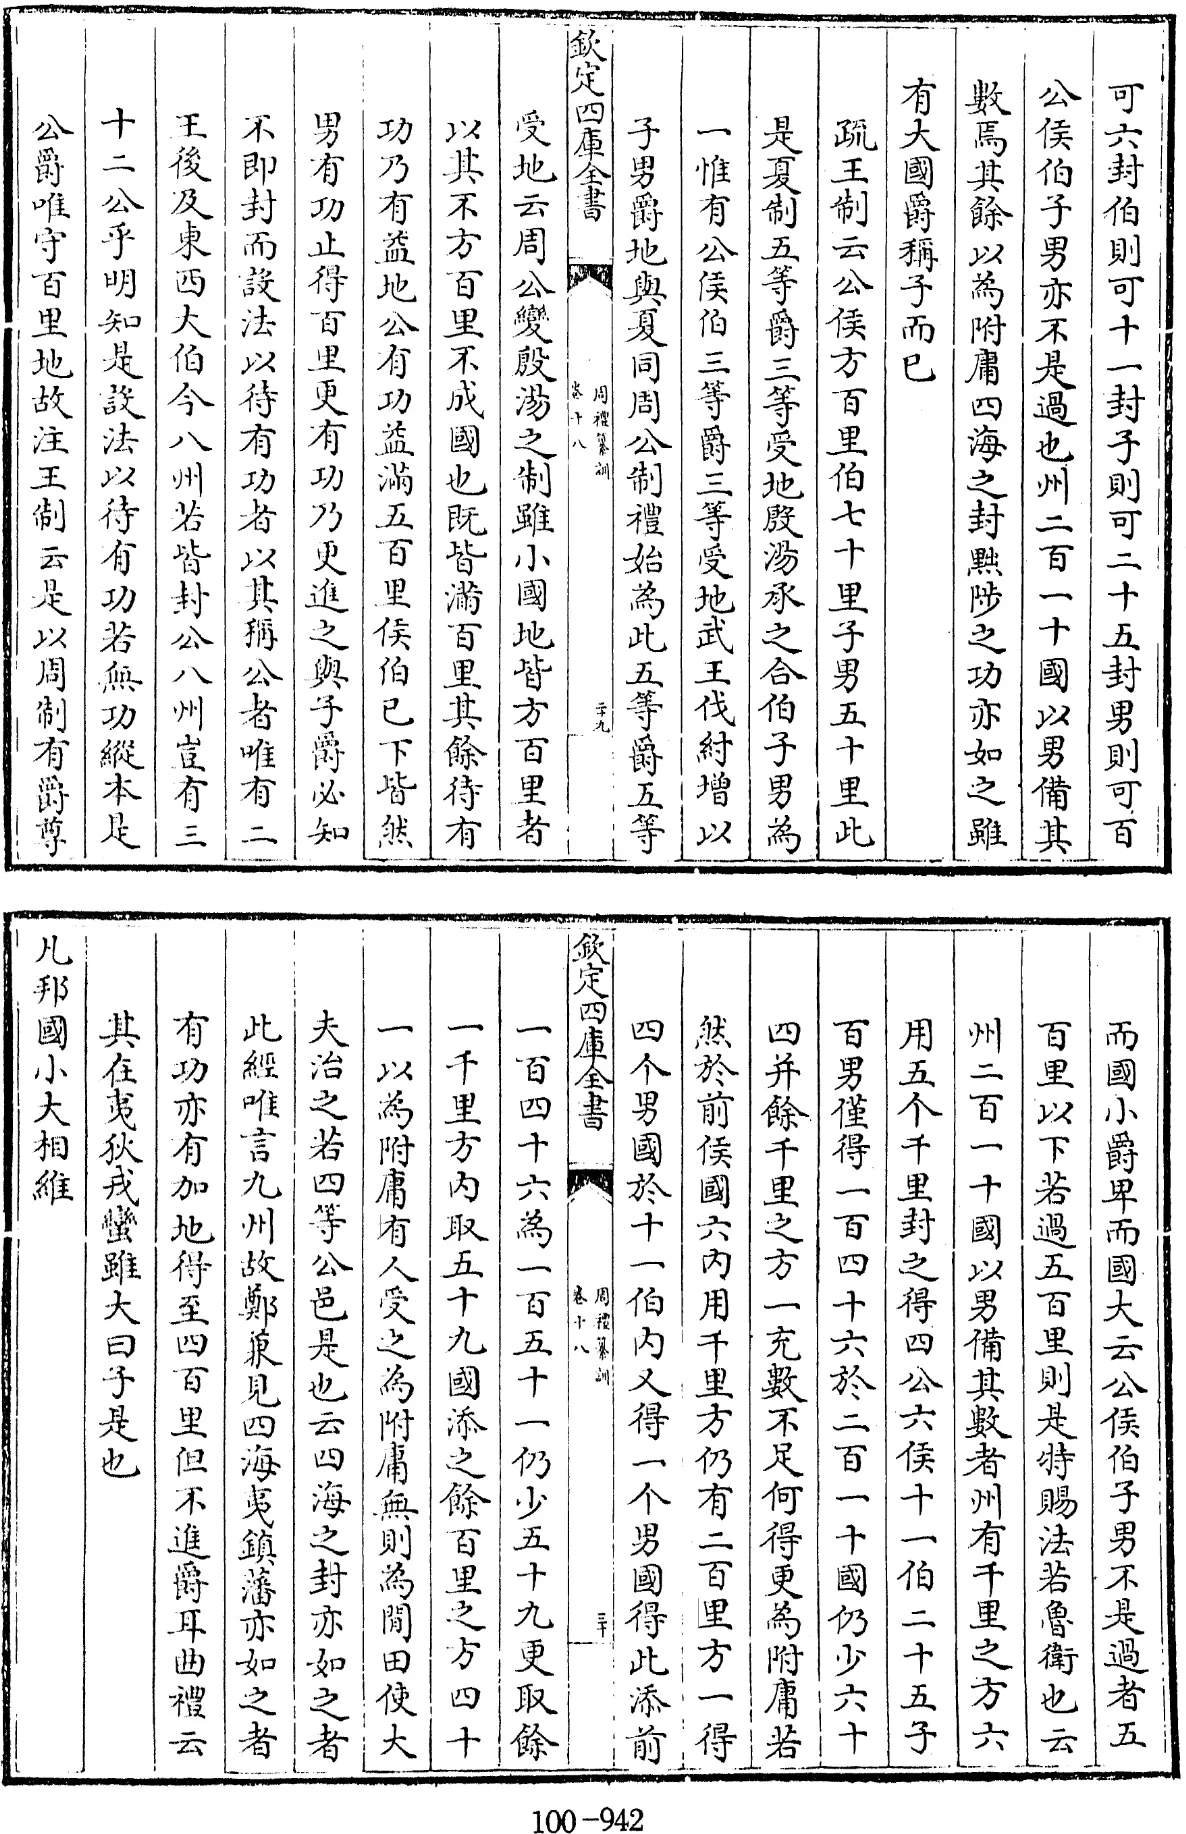 可六封伯則可十一封子則可二十五封男則可百
公侯伯子男亦不是過也州二百一十國以男備其
數焉其餘以為附庸四海之封黜陟之功亦如之雖
有大國爵稱子而已
疏王制云公侯方百里伯七十里子男五十里此
是夏制五等爵三等受地殷湯承之合伯子男為
一惟有公侯伯三等爵三等受地武王伐紂增以
子男爵地與夏同周公制禮始為此五等爵五等
欽定四庫全書
周禮纂訓
卷十八
二十九
受地云周公變殷湯之制雖小國地皆方百里者
以其不方百里不成國也既皆滿百里其餘待有
功乃有益地公有功益滿五百里侯伯已下皆然
男有功止得百里更有功乃更進之與子爵必知
不即封而設法以待有功者以其稱公者唯有二
王後及東西大伯今八州若皆封公八州豈有三
十二公乎明知是設法以待有功若無功縱本是
公爵唯守百里地故注王制云是以周制有爵尊
而國小爵卑而國大云公侯伯子男不是過者五
百里以下若過五百里則是特賜法若魯衛也云
州二百一十國以男備其數者州有千里之方六
用五个千里封之得四公六侯十一伯二十五子
百男僅得一百四十六於二百一十國仍少六十
四并餘千里之方一充數不足何得更為附庸若
然於前侯國六内用千里方仍有二百里方一得
四个男國於十一伯内又得一个男國得此添前
欽定四庫全書
周禮纂訓
卷十八
三十
一百四十六為一百五十一仍少五十九更取餘
一千里方内取五十九國添之餘百里之方四十
一以為附庸有人受之為附庸無則為閒田使大
夫治之若四等公邑是也云四海之封亦如之者
此經唯言九州故鄭兼見四海夷鎮藩亦如之者
有功亦有加地得至四百里但不進爵耳曲禮云
其在夷狄戎蠻雖大曰子是也
凡邦國小大相維
100-942